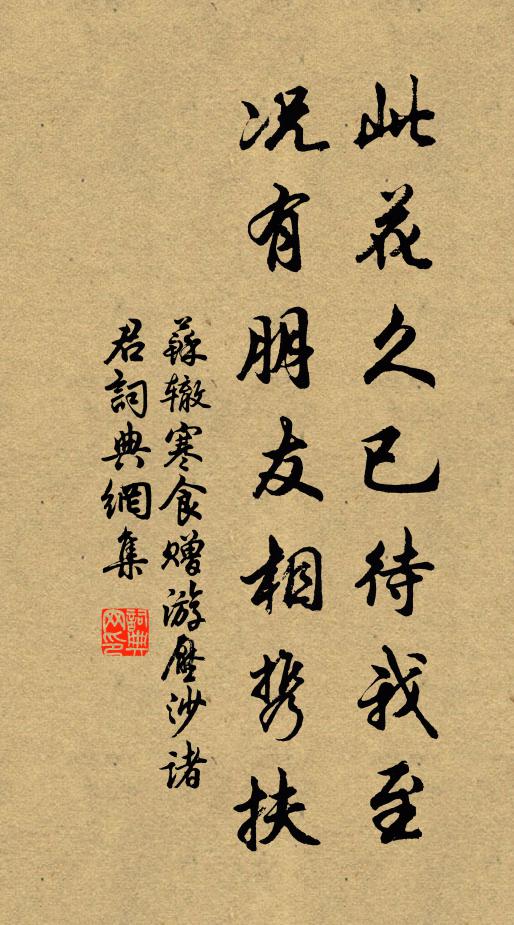 此花久已待我至
况有朋友相携扶
蘇辙寒食赠游壓沙诸
君詞典網集
詞典网印